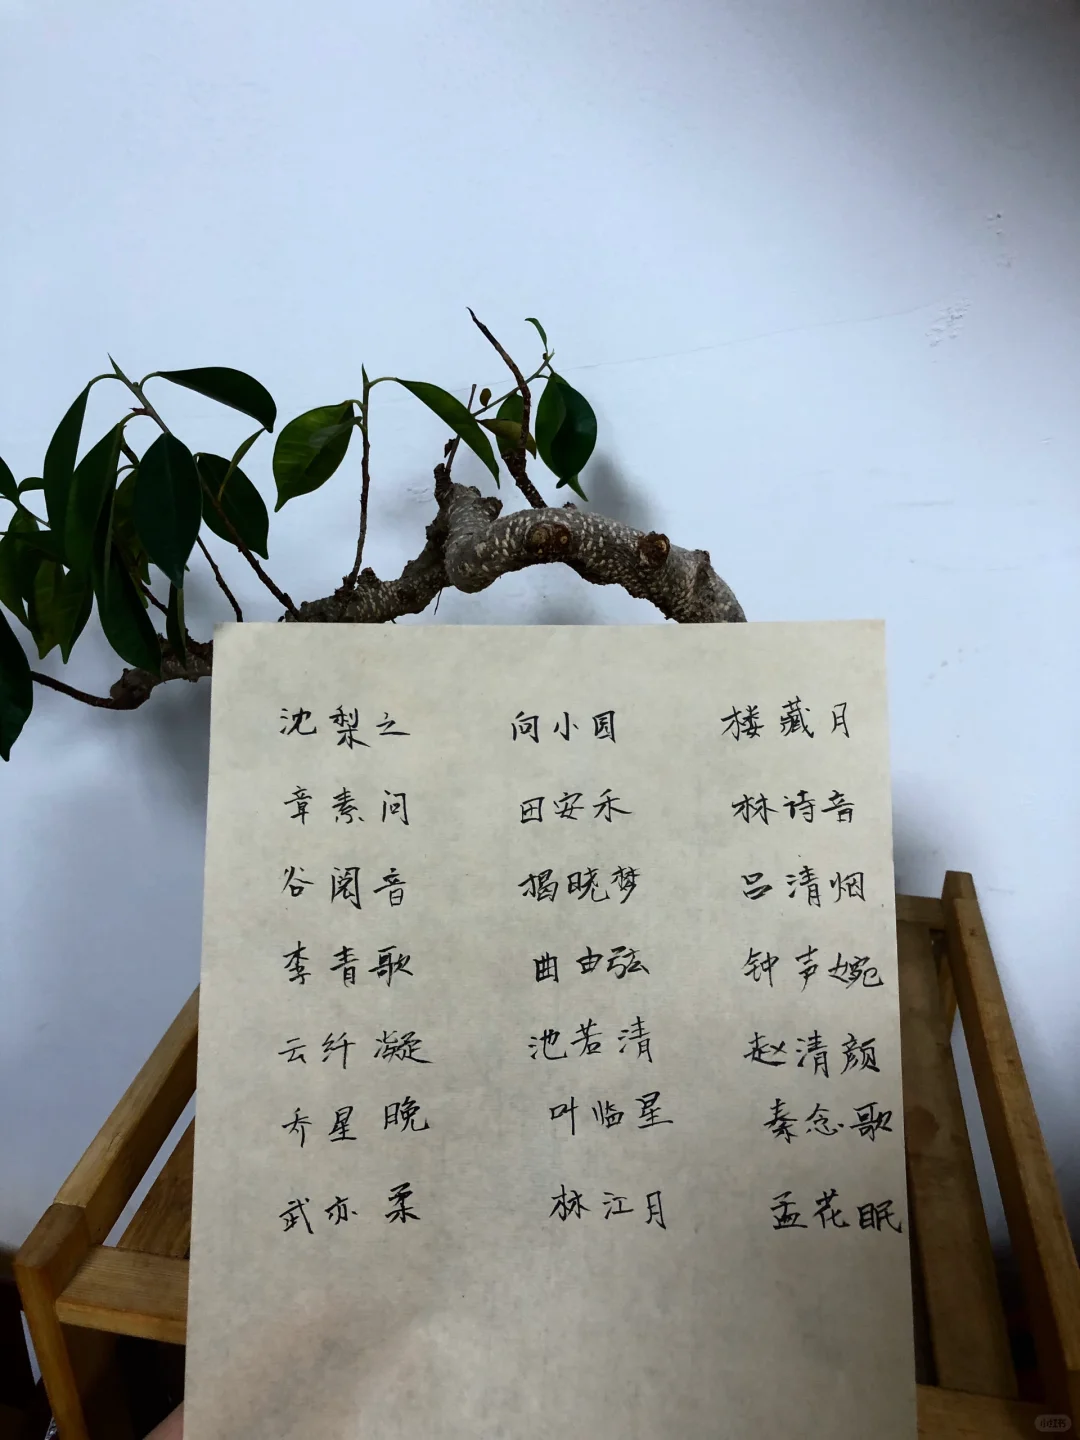 沈梨之 向小园 楼藏月
章素问 田安禾 林诗音
谷阅音 揭晓梦 吕清烟
李青歌 曲由弦 钟声婉
云纤凝 池若清 赵清颜
乔星晚 叶临星 秦念歌
武亦柔 林江月 孟花眠
小红书